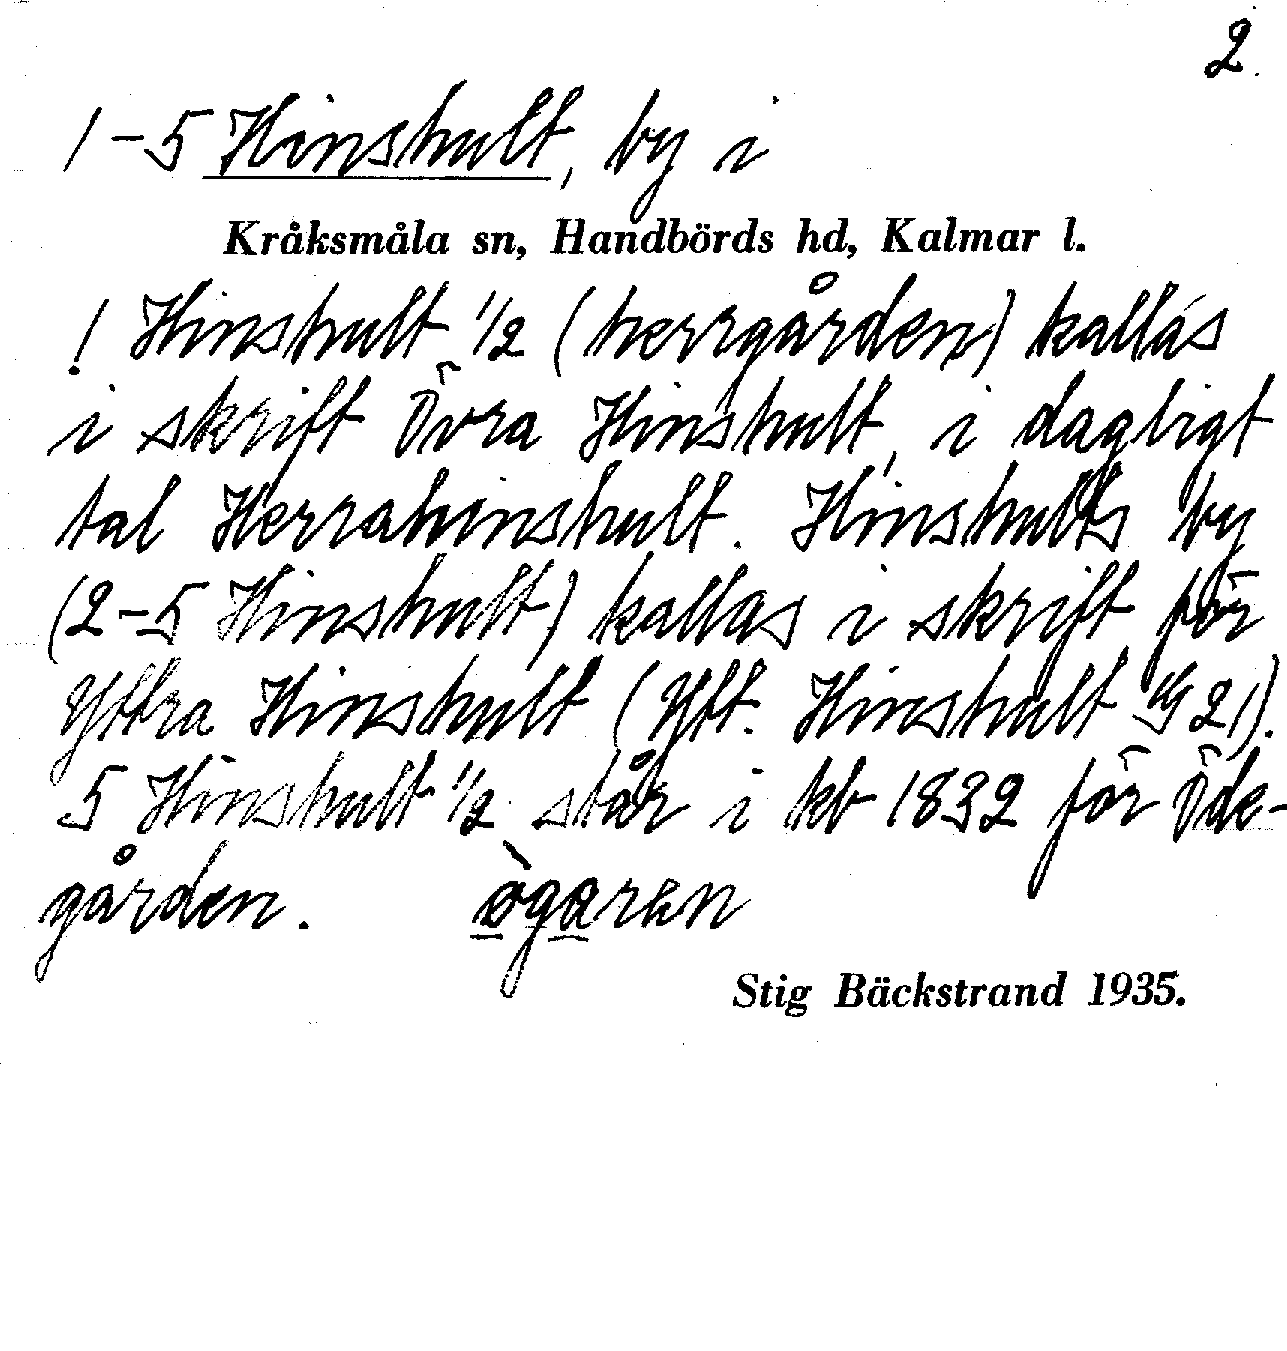 2.
1-5 Hinshult, by i
Kråksmåla sn, Handbörds hd, Kalmar l.
! Hinshult 1/2 (herrgården) kallas
i skrift Övra Hinshult, i dagligt
tal Herrahinshult. Hinshults by
(2-5 Hinshult) kallas i skrift för
Yttra Hinshult (Ytt. Hinshult 21).
5 Hinshult 1/2 står i kb 1832 för Öde-
gården. ògaren
Stig Bäckstrand 1935.